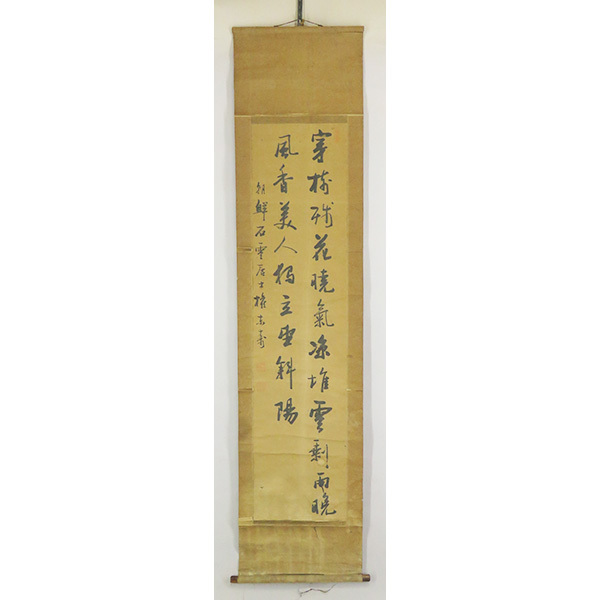 穿樹殘花曉氣凉堆雲剩雨晩
風香美人獨立望斜陽
朝鮮石雲居士權東壽